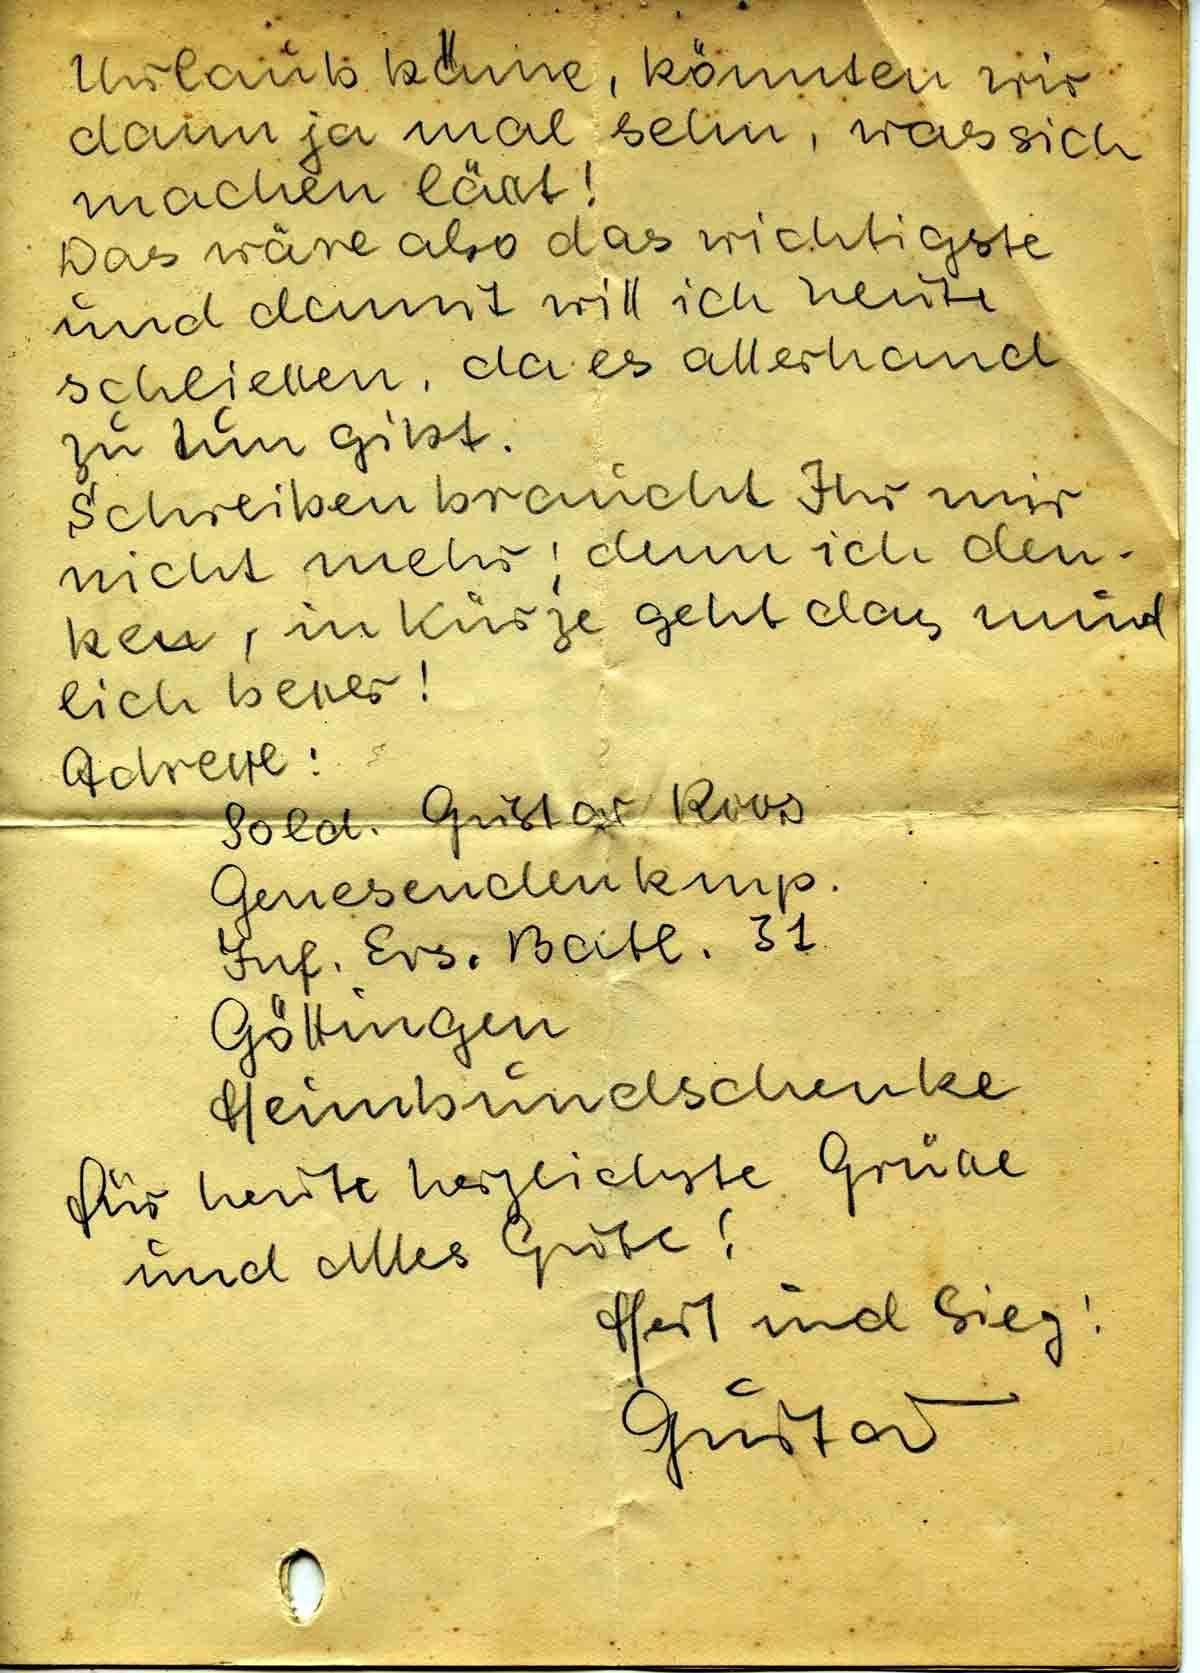 Urlaub käme, könnten wir
dann ja mal sehn, was sich
machen lässt!
Das wäre also das wichtigste
und damit will ich heute
schliessen, da es allerhand
zu tun gibt.
Schreiben braucht Ihr mir
nicht mehr; denn ich den-
ken, in Kürze geht das münd
lich besser!
Adresse:
Sold. Gustav Roos
Genesendenkmp.
Inf. Ers. Batl. 31
Göttingen
Heimbundschenke
für heute herzlichste Grüsse
und alles Gute!
Heil und Sieg!
Gustav